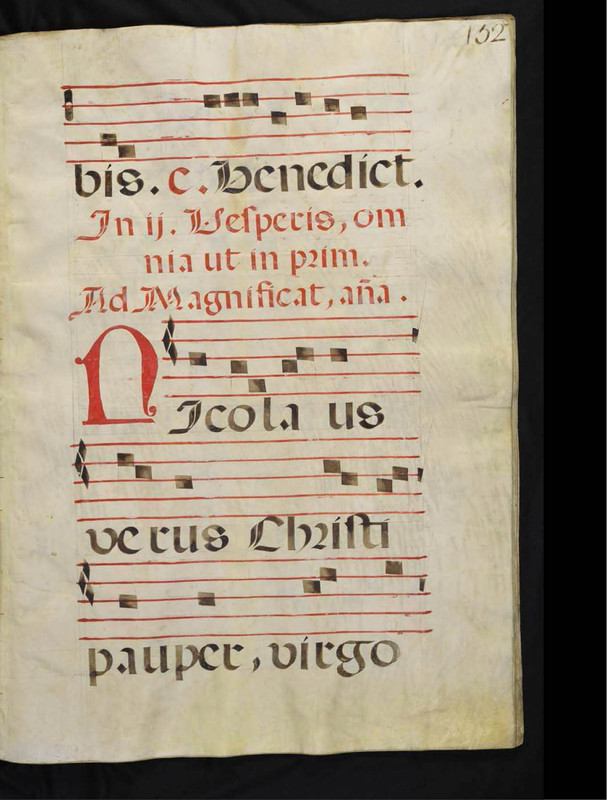 152
bis. c. Benedict.
In ij. Vesperis, om
nia ut in prim.
Ad Magnificat, aña.
Nicola us
verus Christi
pauper, virgo